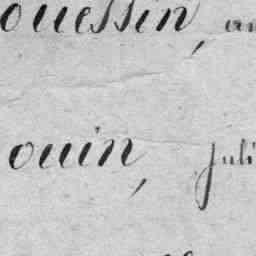 ouessin, an
ouin, juli